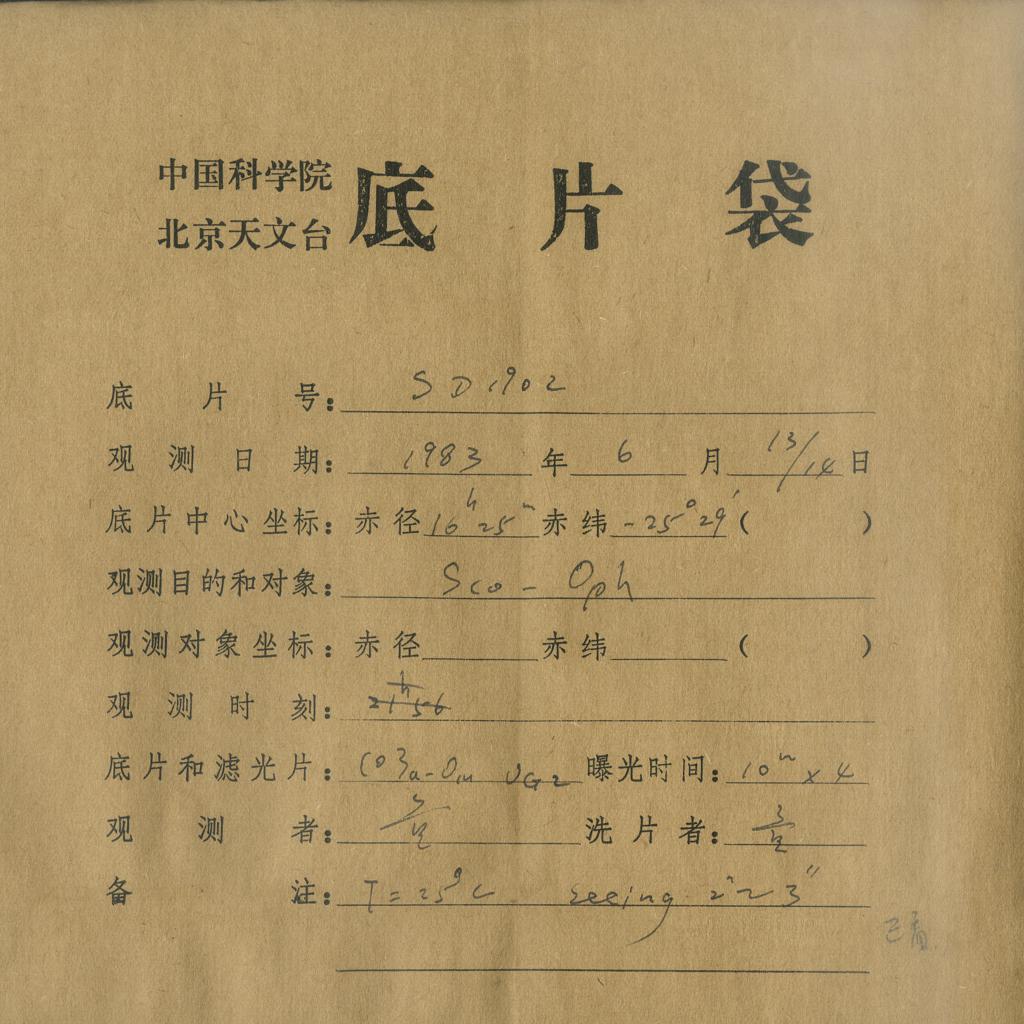 中国科学院
北京天文台 底片袋
底片号：SD1902
观测日期：1983年6月13/14日
底片中心坐标：赤径16h25m赤纬-25°29′（ ）
观测目的和对象：Sco-Oph
观测对象坐标：赤径 赤纬 （ ）
观测时刻：21h56
底片和滤光片：103a-O UG2 曝光时间：10m×4
观测者： 洗片者：
备注：T=25°C seeing 2″~3″
已看